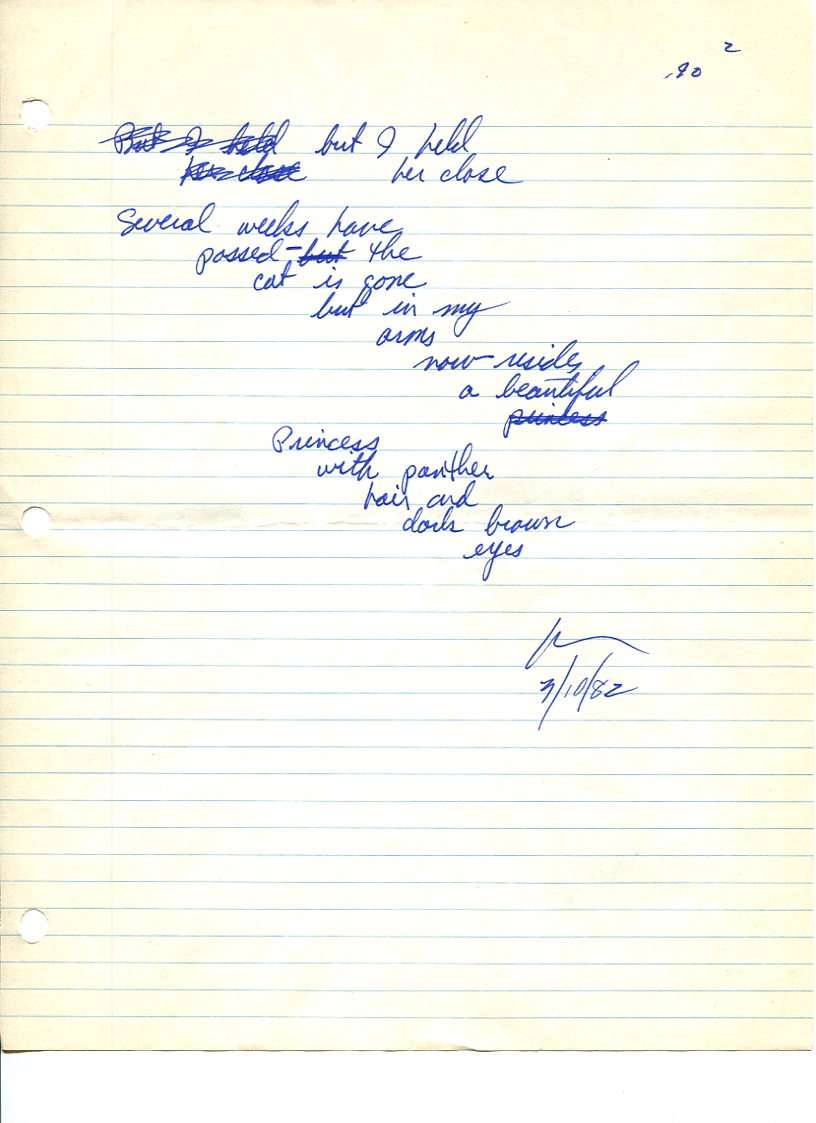 2
.90
But I held but I held
her close her close
Several weeks have
passed - but the
cat is gone
but in my
arms
now resides
a beautiful
princess
Princess
with panther
hair and
dark brown
eyes
3/10/82